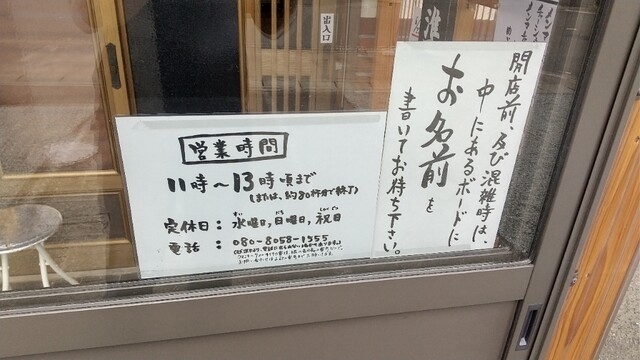 出入口
開店前、及び混雑時は、
中にあるボードに
お名前を
書いてお待ち下さい。
営業時間
11時〜13時頃まで
(または、約80杯分で終了)
定休日：水曜日,日曜日,祝日
電話：080-8058-1555